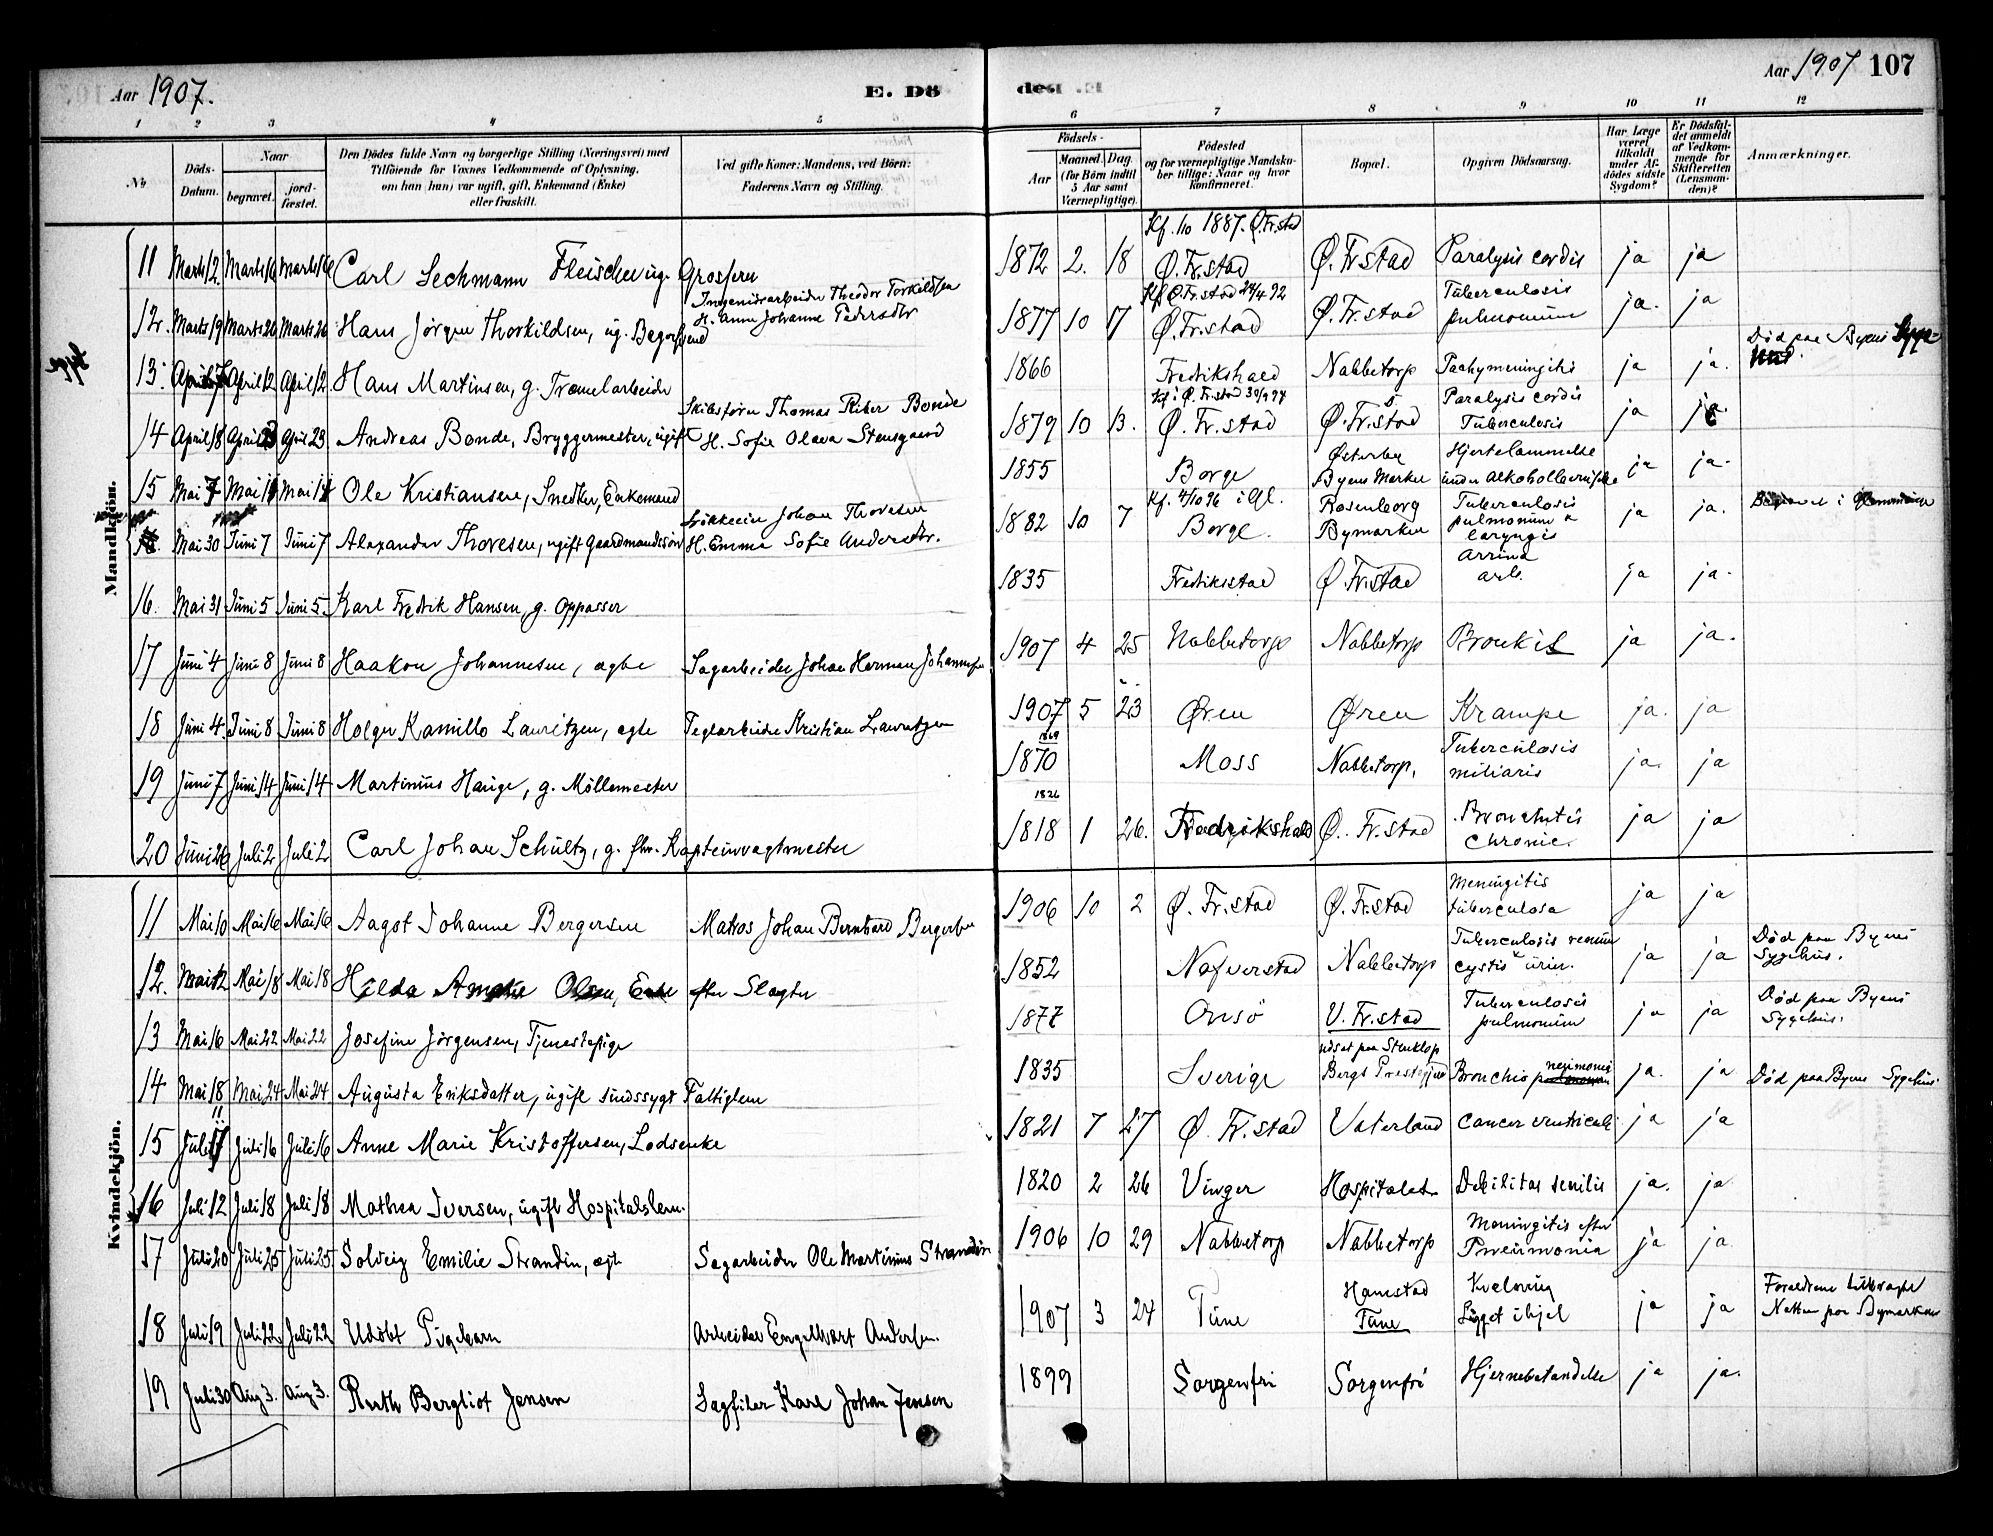 Aar 1907.
E. Dö
des
Aar 1907 107
1 2 3 4 5 6 7 8 9 10 11 12
No
Döds-Datum.
Naar
begravet.
jord-fæstet.
Den Dödes fulde Navn og borgerlige Stilling (Næringsvei) med
Tilföiende for Voxnes Vedkommende af Oplysning,
om han (hun) var ugift, gift, Enkemand (Enke)
eller fraskilt.
Ved gifte Koner: Mandens, ved Börn:
Faderens Navn og Stilling.
Födsels-
Aar
Maaned. Dag.
(for Börn indtil
5 Aar samt
Værnepligtige).
Födested
og for værnepligtige Mandska-
ber tillige: Naar og hvor
konfirmeret.
Bopæl.
Opgiven Dödsaarsag.
Har Læge
været
tilkaldt
under Af-
dödes sidste
Sygdom?
Er Dödsfal-
det anmeldt
af Vedkom-
mende for
Skifteretten
(Lensman-
den)?
Anmærkninger.
Mandkjön.
11 Marts 12. Marts 16 Marts 16 Carl Sechmann Fleischer ug. Grosserer 1872 2. 18 Kf. 1887. Ø.Fr.stad Ø.Fr.stad Ø.Fr.stad Paralysis cordis ja ja
12. Marts 19 Marts 26 Marts 26 Hans Jörgen Thorkildsen, ug. Theodor Torkildsen H. Anne Johanne Pedersdtr 1877 10 17 Kf. Ø.Fr.stad 24/4 92 Ø.Fr.stad Ø.Fr.stad Tuberculosis pulmonum ja. ja
13. April 7 April 12 April 12 Hans Martinsen, g. Trævarearbeider 1866 Fredrikshald Nabbetorp Pachymeningitis ja ja. Död paa Byens Syge-
14 April 18 April 23 April 23 Andreas Bonde, Bryggermester, ugift Skibsförer Thomas Riber Bonde H. Sofie Olava Stensgaard 1879 10 13. Kf. i Ø.Fr.stad Ø.Fr.stad Ø.Fr.stad Paralysis cordis Tuberculosis ja ja
15 Mai 7 Mai 14 Mai 14 Ole Kristiansen, Snedker, Enkemand 1855 Borge Østerby Byens Marker Hjertelammelse under Alkoholberuselse ja ja.
Mai 30 Juni 7 Juni 7 Alexander Thoresen, ugift Gaardmandssön Johan Thoresen H. Emma Sofie Andersdtr. 1882 10 7 Kf. 4/10 96 i Gl. Borge. Rosenborg Bymarken Tuberculosis pulmonum & laryngis ja ja.
16. Mai 31 Juni 5 Juni 5. Karl Fredrik Hansen, g. Oppasser 1835 Fredriksstad Ø.Fr.stad ja ja.
17 Juni 4 Juni 8 Juni 8 Haakon Johannesen, ægte Sagarbeider Johan Herman Johannesen 1907 4 25 Nabbetorp Nabbetorp Bronkit ja ja.
18 Juni 4. Juni 8 Juni 8 Holger Kamillo Lauritzen, ægte Teglarbeider Kristian Lauritzen 1907 5 23 Øren Øren Krampe ja. ja
19 Juni 7 Juni 14 Juni 14 Martinius Hauge, g. Möllemester 1869 1870 Moss Nabbetorp. Tuberculosis miliaris ja. ja
20 Juni 26 Juli 2 Juli 2 Carl Johan Schultz, g. fhv. Kapteinvagtmester 1826 1818 1 26. Fredrikshald Ø. Fr.stad Bronchitis chronic. ja ja
Kvindekjön.
11 Mai 10 Mai 16 Mai 16 Aagot Johanne Bergersen Matros Johan Bernhard Bergersen 1906 10 2 Ø. Fr.stad Ø.Fr.stad Meningitis tuberculosa ja ja
12. Mai 12 Mai 18 Mai 18 Hilda Olsen, Enke efter Slagter 1852 Nafverstad Nabbetorp Tuberculosis renum cystis urin. ja ja Död paa Byens Sygehus.
13 Mai 16 Mai 22 Mai 22 Josefine Jörgensen, Tjenestepige 1877 Onsö V. Fr.stad Tuberculosis pulmonum ja ja Död paa Byens Sygehus.
14 Mai 18 Mai 24 Mai 24 Augusta Eriksdatter, ugift sindssyg Fattiglem 1835 Sverige udsat paa Stenklop Bergs Prestegjeld Bronchiopneumonia ja. ja Död paa Byens Sygehus.
15 Juli 11 Juli 16 Juli 16 Anne Marie Kristoffersen, Lodsenke 1821 7 27 Ø. Fr.stad Vaterland Cancer ventriculi ja ja
16 Juli 12 Juli 18 Juli 18 Mathea Iversen, ugift Hospitalslem. 1820 2 26 Vinger Hospitalet Debilitas senilis ja. ja
17 Juli 20 Juli 25 Juli 25 Solveig Emilie Strandin, ægte Sagarbeider Ole Martinius Strandin 1906 10 29 Nabbetorp Nabbetorp Meningitis efter Pneumonia ja ja
18 Juli 19 Juli 22 Juli 22 Udöbt Pigebarn Arbeider Engelhart Andersen. 1907 3 24 Tune Haustad Tune Kvælning Ligget ihjel ja ja Forældrene tilbragte Natten paa Bymarken
19 Juli 30 Aug 3. Aug 3. Ruth Bergliot Jensen Sagfiler Karl Johan Jensen 1899 Sorgenfri Sorgenfri Hjernebetændelse ja ja.